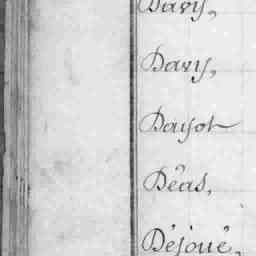 Davy,
Davy,
Dayot
Déas,
Déjoué,